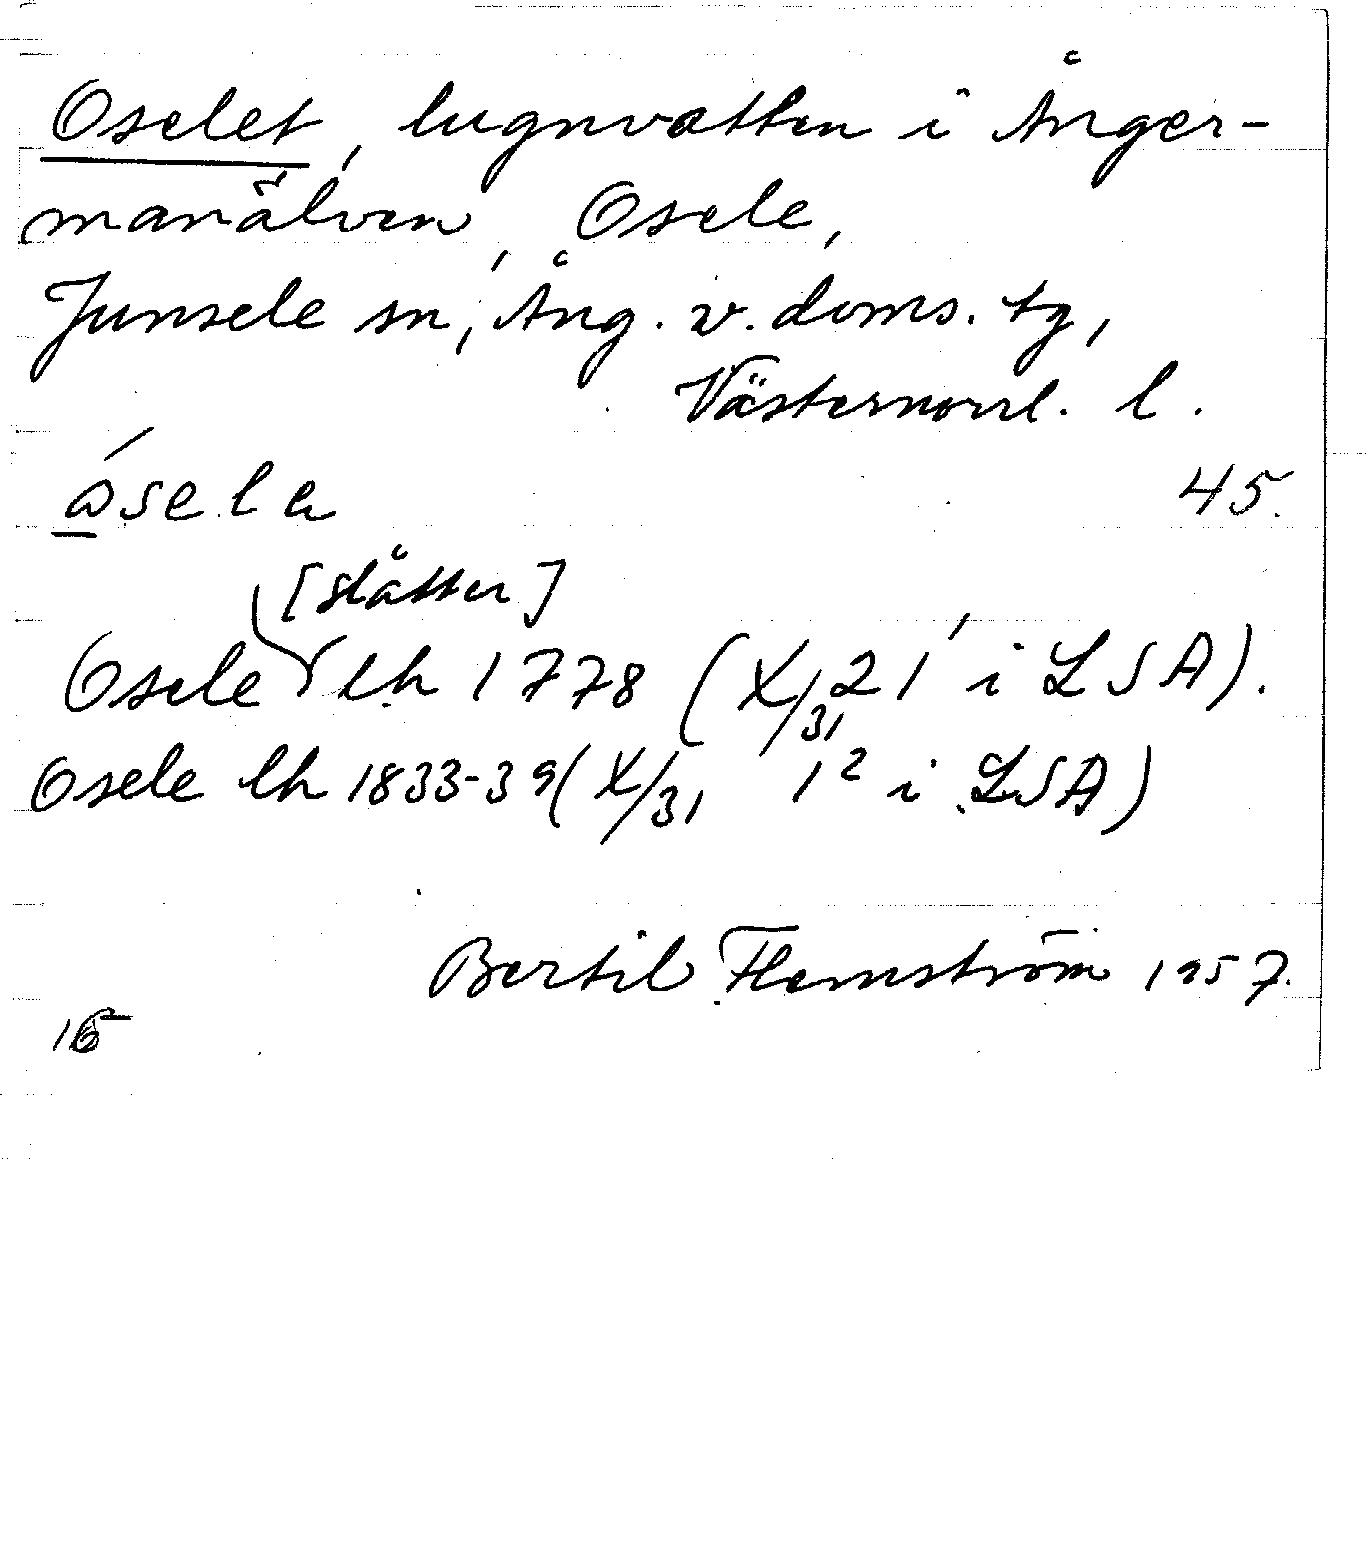 Oselet, lugnvatten i Ånger-
manälven, Osele,
Junsele sn, Ång. v. doms. tg,
Västernorrl. l.
ósela 45.
[slåtter]
Osele lh 1778 (X/31 21' i LSA).
Osele lh 1833-39 (X/31 1² i LSA)
Bertil Flemström 1957.